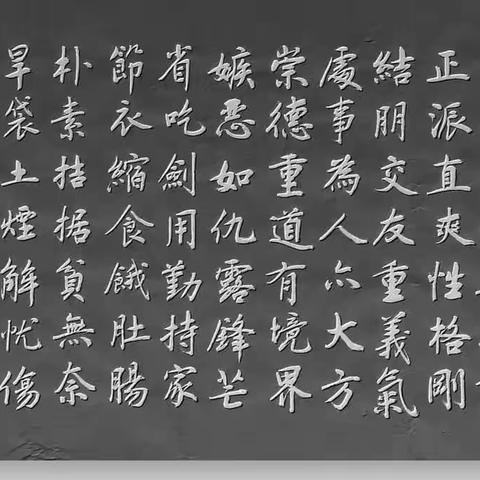 正派直爽性格剛
結朋交友重義氣
處事為人六大方
崇德重道有境界
嫉恶如仇露鋒芒
省吃劍用勤持家
節衣縮食餓肚腸
朴素拮据貧無奈
旱袋土煙解忧傷